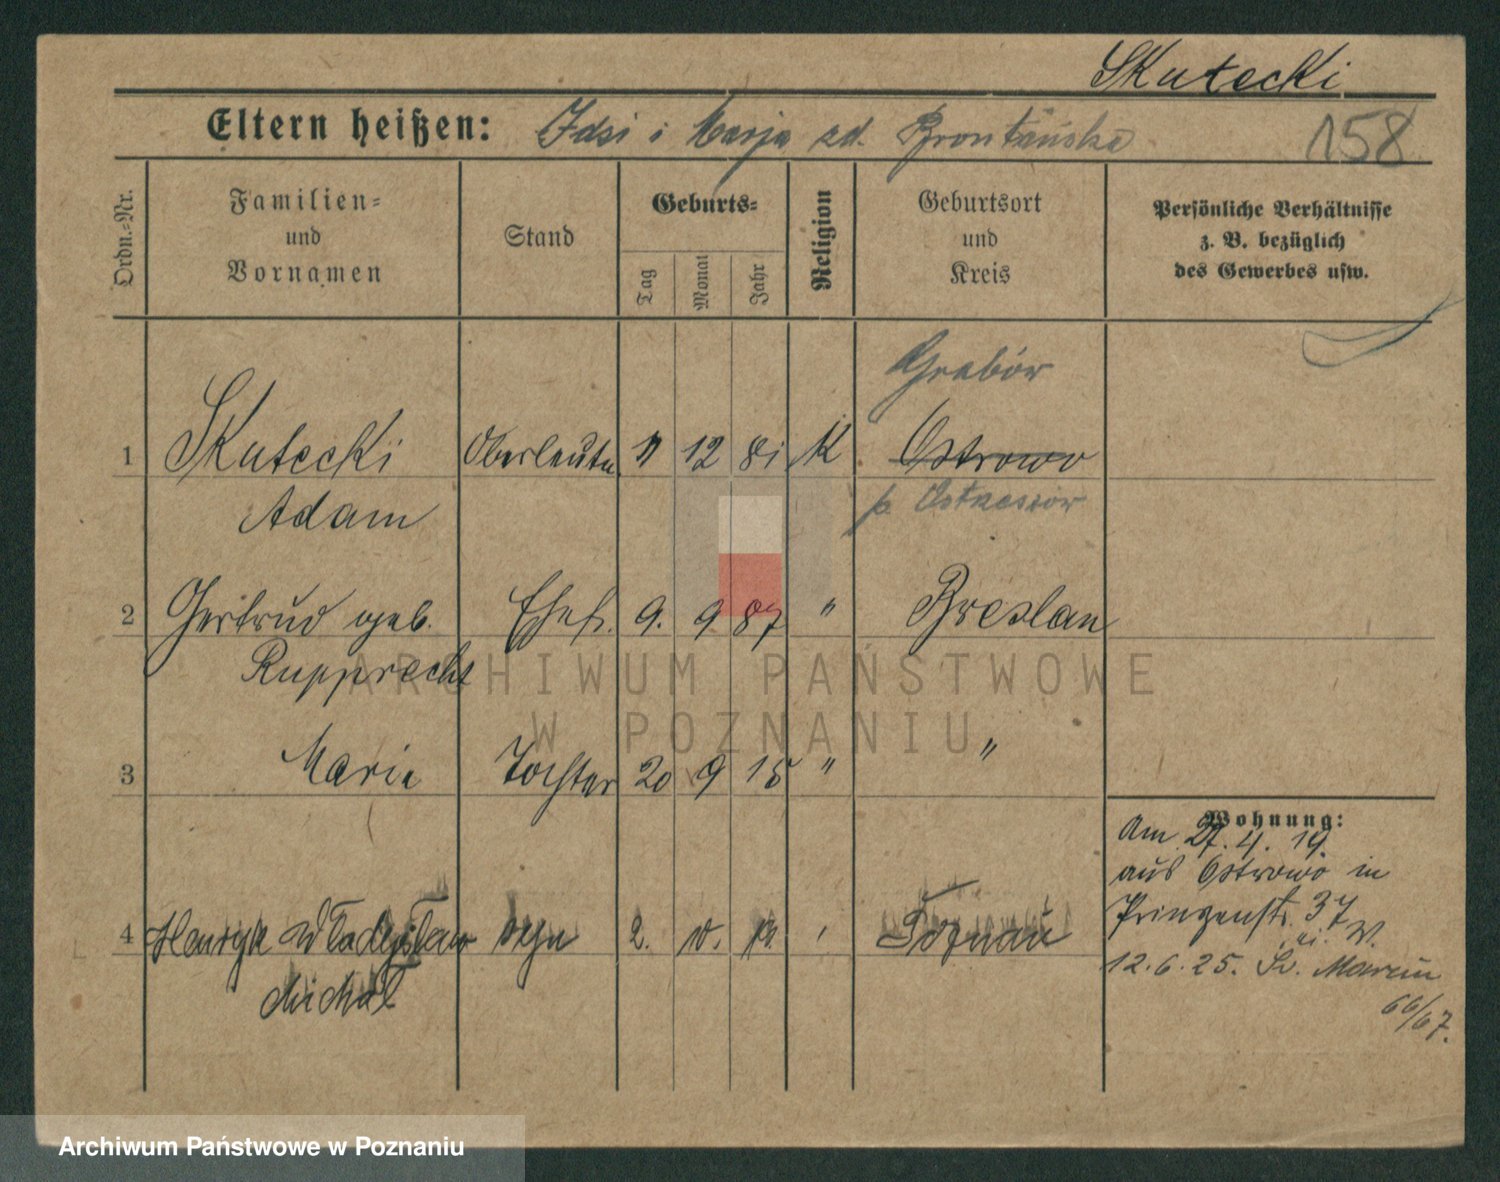 Skutecki
Eltern heißen: Idzi i Marja zd.
158
Ordn.-Nr.
Familien-
und
Vornamen
Stand
Geburts-
Tag
Monat
Jahr
Religion
Geburtsort
und
Kreis
Persönliche Verhältnisse
z. B. bezüglich
des Gewerbes usw.
Grabów
1 Skutecki Oberleutn. 12 81 K Ostrowo
Adam p.
2 Gertrud geb. Ehefr. 9. 9 87 " Breslau
Rupprecht
3 Marie Tochter 20 9 15 " "
Wohnung:
Am 27. 4. 19.
aus Ostrowo in
Prinzenstr. 37
4 Henryk Władysław syn 2. Poznań
Michał
12. 6. 25. Św. Marcin
66/67.
ARCHIWUM PAŃSTWOWE
W POZNANIU
Archiwum Państwowe w Poznaniu